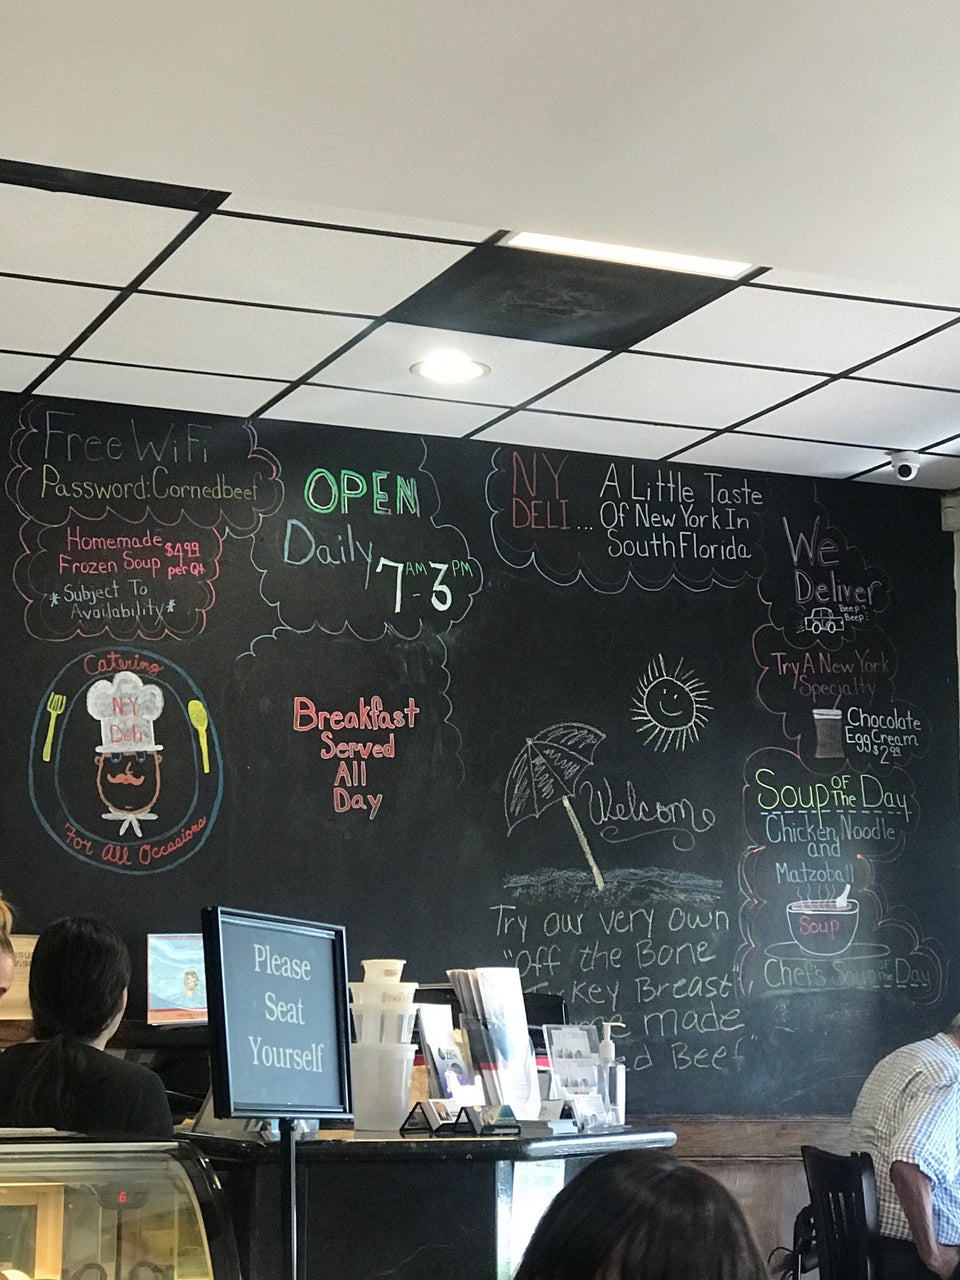 Free WiFi
Password:Cornedbeef
Homemade
Frozen Soup
$4.99
per Qt
*Subject To
Availability*
Catering
NY
Deli
For All Occasions
OPEN
Daily
7AM-3PM
Breakfast
Served
All
Day
NY
DELI...
A Little Taste
Of New York In
South Florida
We
Deliver
Beep
Beep
Try A New York
Specialty
Chocolate
Egg Cream
$2.99
Soup OF The Day
Chicken Noodle
and
Matzoball
Soup
Chef's Soup of The Day
Welcome
Try our very own
"Off the Bone
Breast
made
Beef"
Please
Seat
Yourself
6